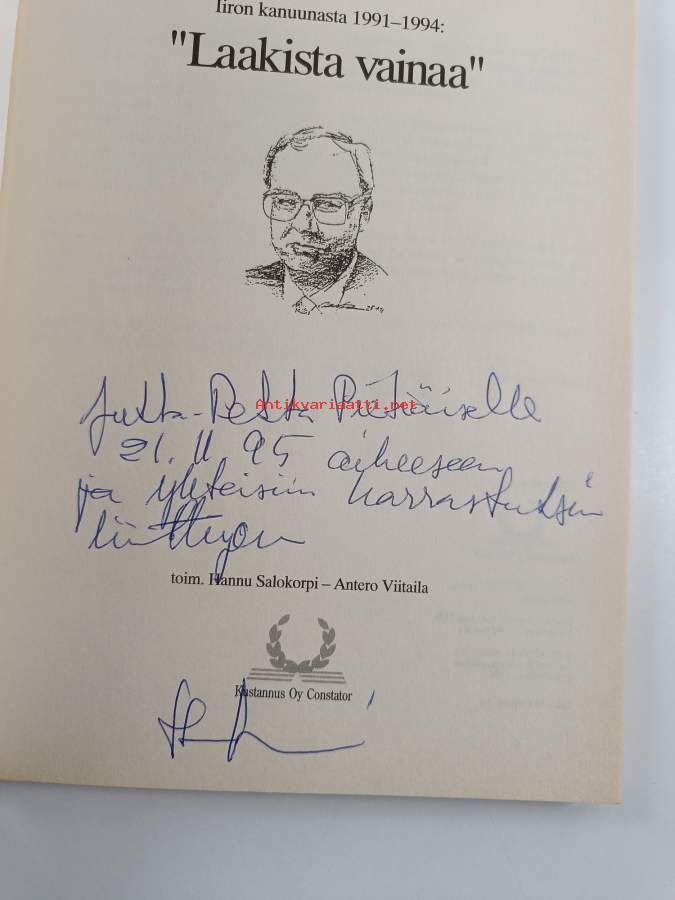 Iiron kanuunasta 1991–1994:
"Laakista vainaa"
Jutta-Reeta
Antikvariaatti.net
21.11.95 aiheeseen
ja yhteisiin harrastuksiin
liittyen
toim. Hannu Salokorpi – Antero Viitaila
Kustannus Oy Constator